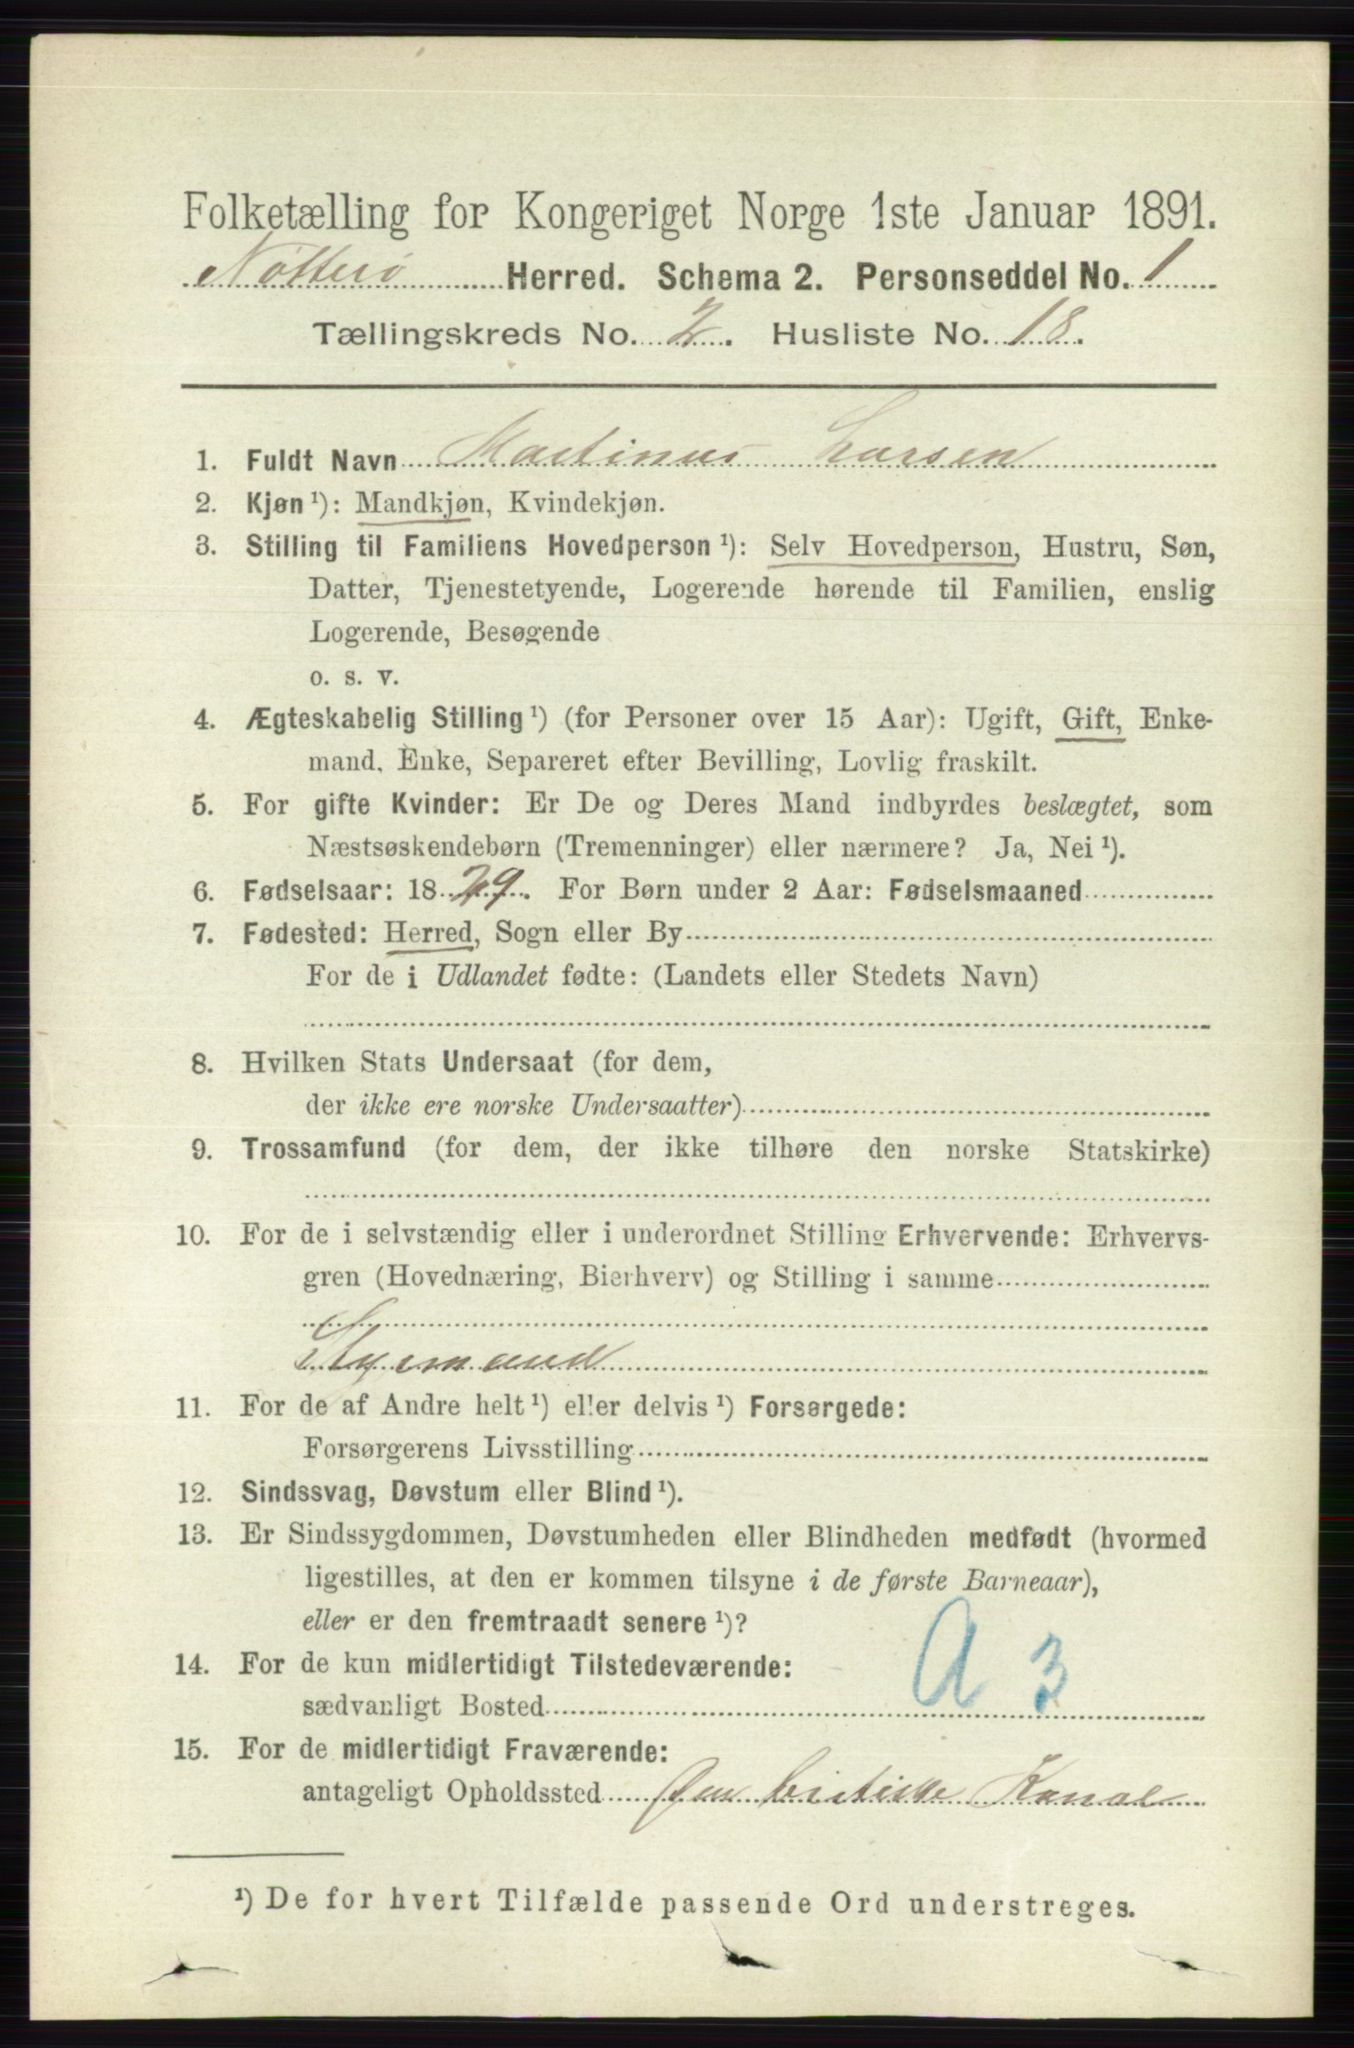 Folketælling for Kongeriget Norge 1ste Januar 1891.
Nøtterø Herred. Schema 2. Personseddel No. 1
Tællingskreds No. 2. Husliste No. 18.
1. Fuldt Navn Martinus Larsen
2. Kjøn ¹): Mandkjøn, Kvindekjøn.
3. Stilling til Familiens Hovedperson ¹): Selv Hovedperson, Hustru, Søn,
Datter, Tjenestetyende, Logerende hørende til Familien, enslig
Logerende, Besøgende
o. s. v.
4. Ægteskabelig Stilling ¹) (for Personer over 15 Aar): Ugift, Gift, Enke-
mand, Enke, Separeret efter Bevilling, Lovlig fraskilt.
5. For gifte Kvinder: Er De og Deres Mand indbyrdes beslægtet, som
Næstsøskendebørn (Tremenninger) eller nærmere? Ja, Nei ¹).
6. Fødselsaar: 1829. For Børn under 2 Aar: Fødselsmaaned
7. Fødested: Herred, Sogn eller By
For de i Udlandet fødte: (Landets eller Stedets Navn)
8. Hvilken Stats Undersaat (for dem,
der ikke ere norske Undersaatter)
9. Trossamfund (for dem, der ikke tilhøre den norske Statskirke)
10. For de i selvstændig eller i underordnet Stilling Erhvervende: Erhvervs-
gren (Hovednæring, Bierhverv) og Stilling i samme
Styrmand
11. For de af Andre helt ¹) eller delvis ¹) Forsørgede:
Forsørgerens Livsstilling
12. Sindssvag, Døvstum eller Blind ¹).
13. Er Sindssygdommen, Døvstumheden eller Blindheden medfødt (hvormed
ligestilles, at den er kommen tilsyne i de første Barneaar),
eller er den fremtraadt senere ¹)?
A 3
14. For de kun midlertidigt Tilstedeværende:
sædvanligt Bosted
15. For de midlertidigt Fraværende:
antageligt Opholdssted Kanal
¹) De for hvert Tilfælde passende Ord understreges.